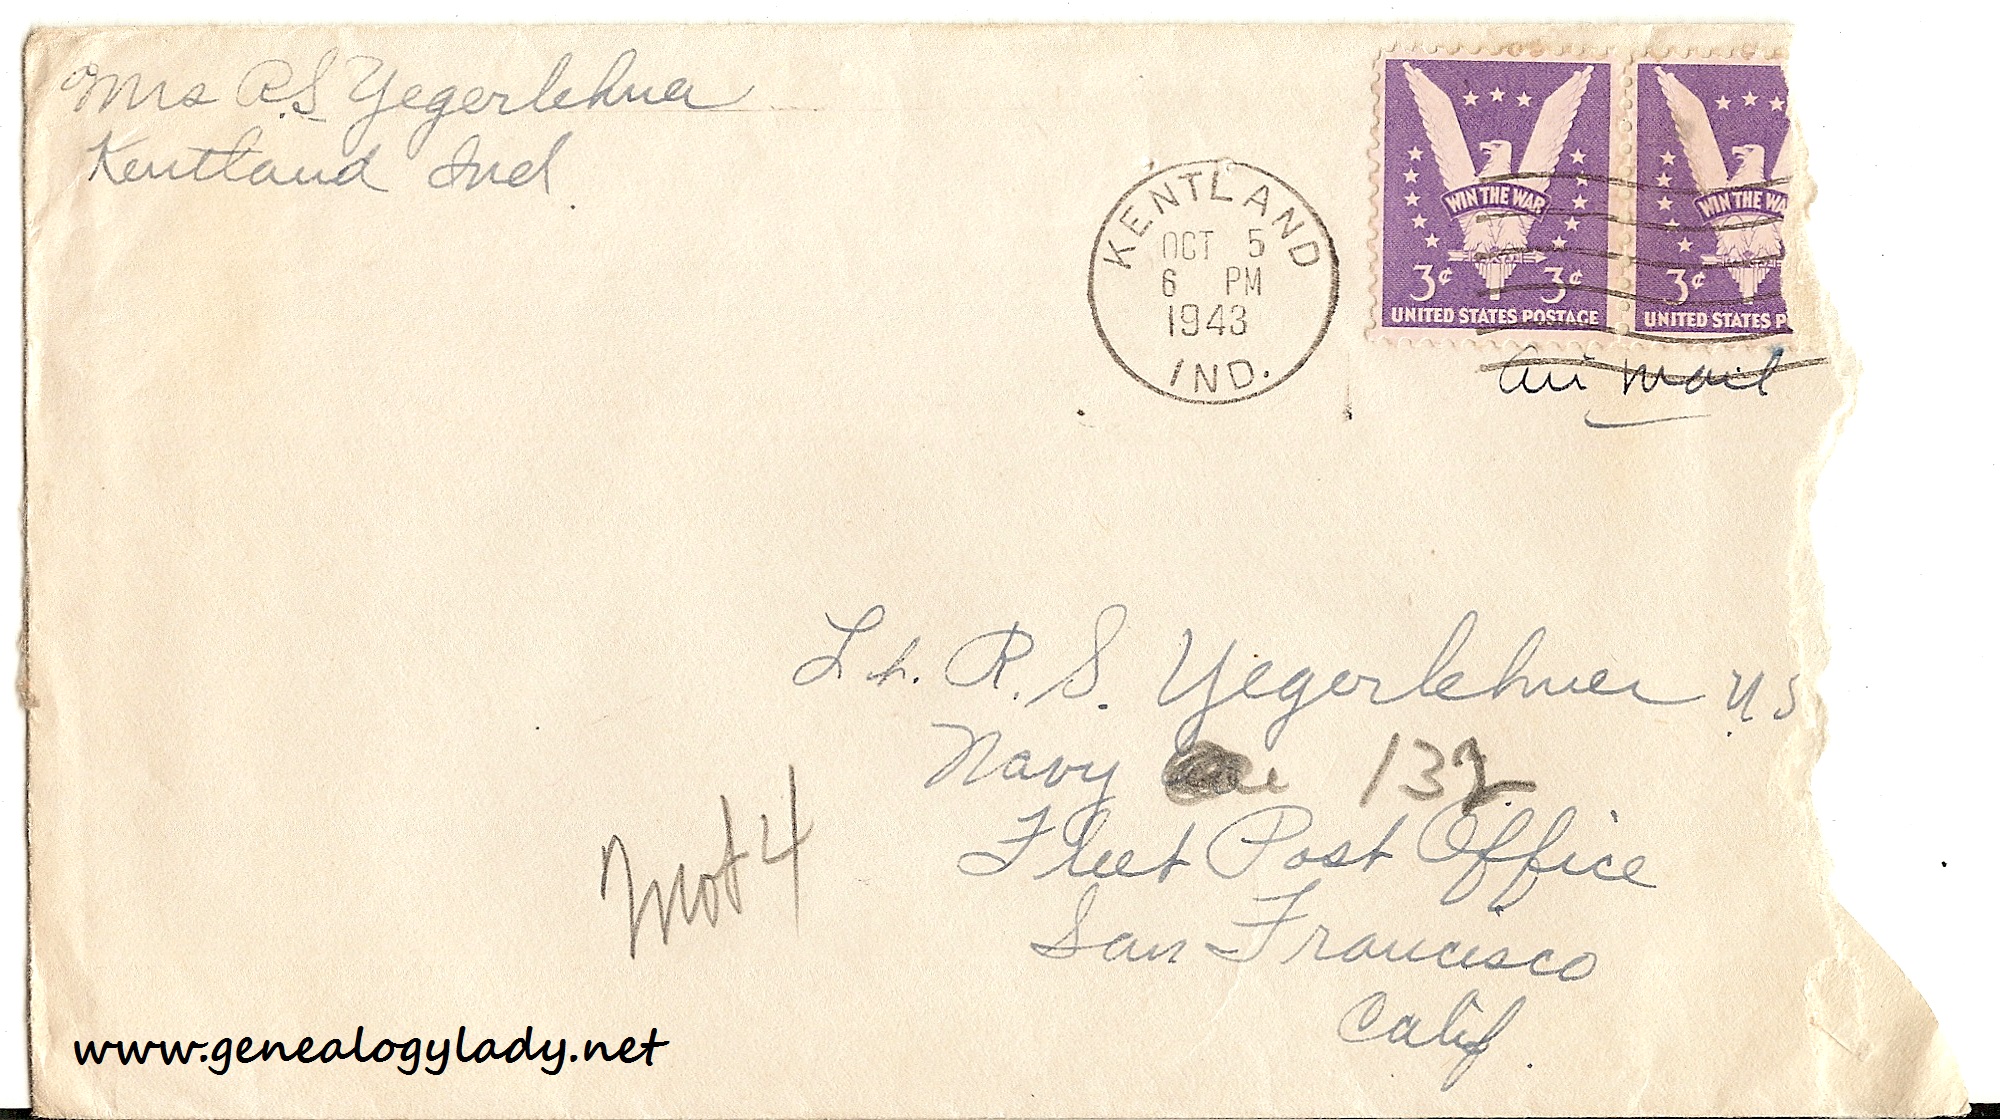 Mrs R.S Yegerlehner
Kentland Ind.
KENTLAND
OCT 5
6 PM
1943
IND.
WIN THE WAR
3¢ 3¢
UNITED STATES POSTAGE
WIN THE WA
3¢
UNITED STATES P
Air Mail
Lt. R. S. Yegerlehner U.S
Navy 132
Fleet Post Office
San Francisco
Calif.
4
www.genealogylady.net